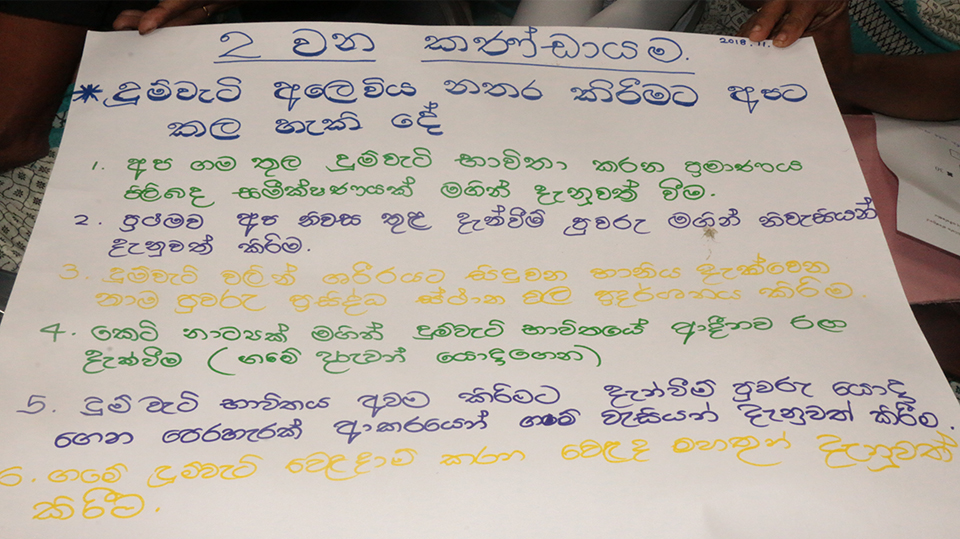 2 වන කණ්ඩායම.
2018.11.
* දුම්වැටි අලෙවිය නතර කිරීමට අපට
කල හැකි දේ
1. අප ගම තුල දුම්වැටි භාවිතා කරන ප්‍රමාණය
පිලිබද සමීක්ෂණයක් මගින් දැනුවත් වීම.
2. ප්‍රථමව අප නිවස තුළ දැන්වීම් පුවරු මගින් නිවැසියන්
දැනුවත් කිරිම.
3. දුම්වැටි වලින් ශරීරයට සිදුවන හානිය දැක්වෙන
නාම පුවරු ප්‍රසිද්ධ ස්ථාන වල ප්‍රදර්ශනය කිරිම.
4. කෙටි නාට්‍යක් මගින් දුම්වැටි භාවිතයේ ආදීනව රඟ
දැක්වීම (ගමේ දරුවන් යොදාගෙන)
5. දුම්වැටි භාවිතය අවම කිරිමට දැන්වීම් පුවරු යොදා
ගෙන පෙරහැරක් ආකරයෙන් ගමේ වැසියන් දැනුවත් කිරීම.
6. ගමේ දුම්වැටි වෙළදාම් කරන වෙළද මහතුන් දැනුවත්
කිරීම.